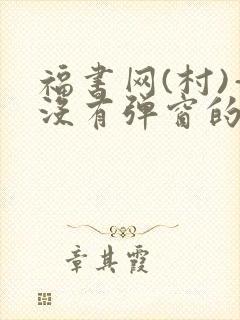 福书网(村)-
没有弹窗的
章其霞